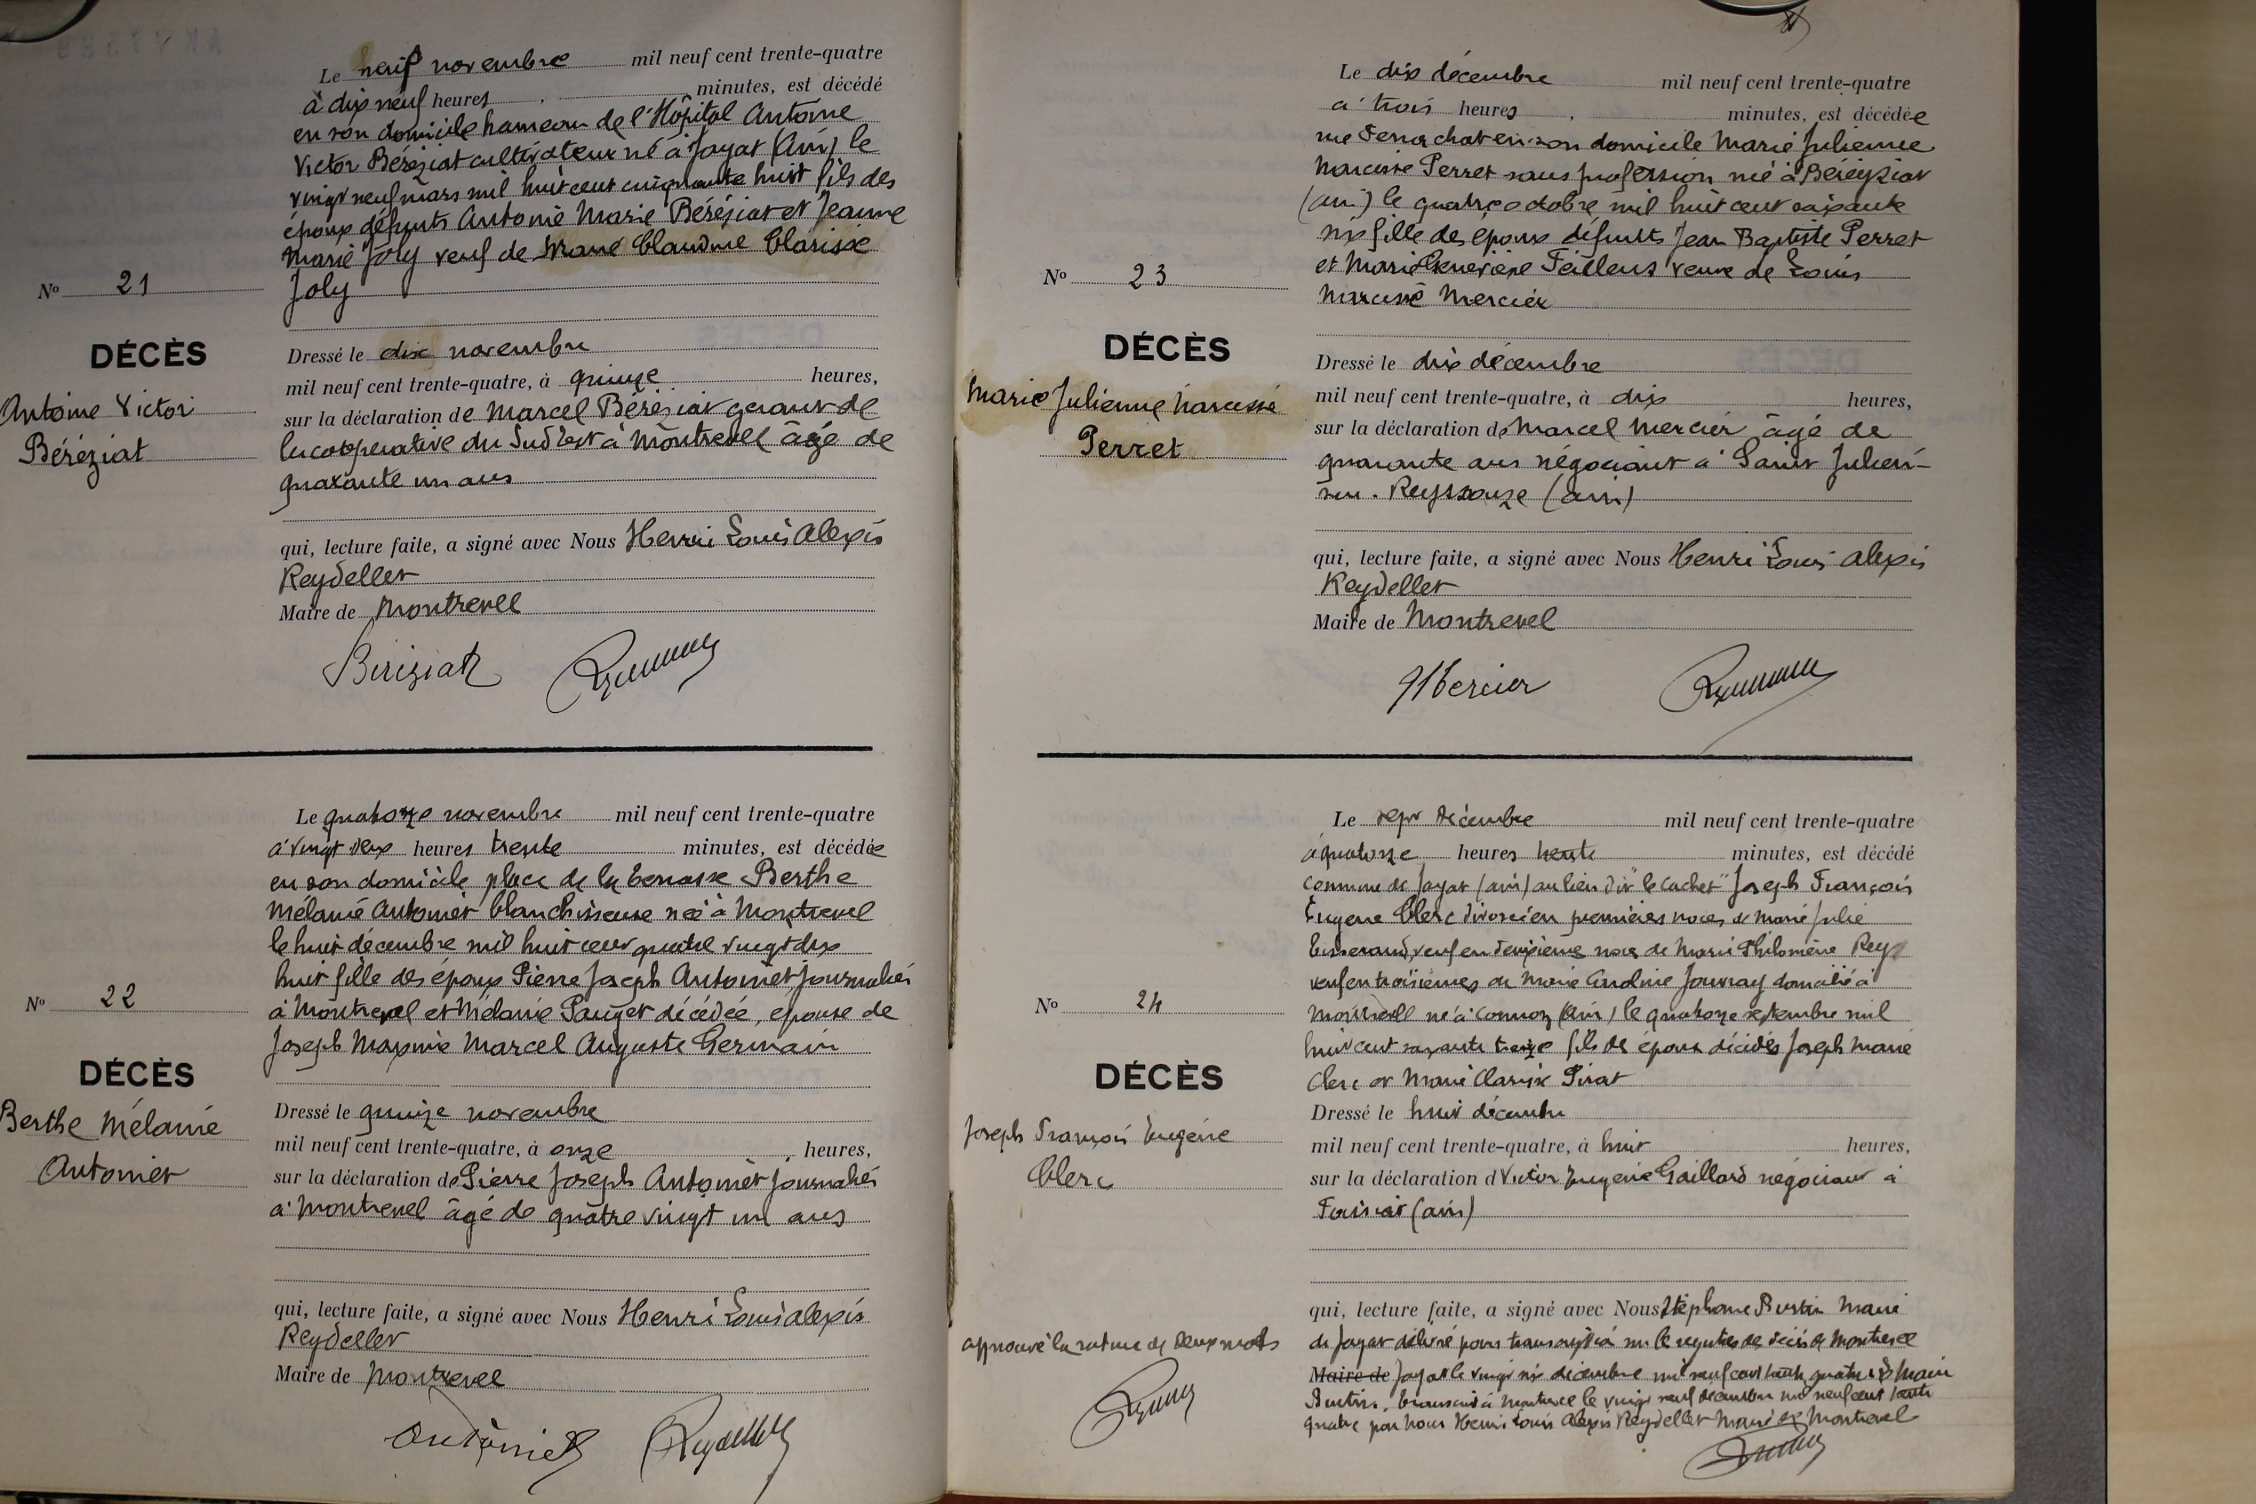 Le neuf novembre mil neuf cent trente-quatre
à dix neuf heures minutes, est décédé
en son domicile hameau de l'Hôpital Antoine
Victor Béréziat cultivateur né à Jayat (Ain) le
vingt neuf mars mil huit cent cinquante huit fils des
époux défunts Antoine Marie Béréziat et Jeanne
Marie Joly veuf de Marie Claudine Clarisse
Joly
Nº 21
DÉCÈS
Antoine Victor
Béréziat
Dressé le dix novembre
mil neuf cent trente-quatre, à quinze heures,
sur la déclaration de Marcel Béréziat gérant de
la coopérative du Sud Est à Montrevel âgé de
quarante un ans
qui, lecture faite, a signé avec Nous Henri Louis Alexis
Reydellet
Maire de Montrevel
Béréziat
Le quatorze novembre mil neuf cent trente-quatre
à vingt deux heures trente minutes, est décédée
en son domicile place de la Berthe
Mélanie Antoinet blanchisseuse née à Montrevel
le huit décembre mil huit cent quatre vingt dix
huit fille des époux Pierre Joseph Antoinet journalier
à Montrevel et Mélanie Pauget décédée, épouse de
Joseph Maxime Marcel Auguste Germain
Nº 22
DÉCÈS
Berthe Mélanie
Antoinet
Dressé le quinze novembre
mil neuf cent trente-quatre, à onze heures,
sur la déclaration de Pierre Joseph Antoinet journalier
à Montrevel âgé de quatre vingt un ans
qui, lecture faite, a signé avec Nous Henri Louis Alexis
Reydellet
Maire de Montrevel
Antoinet Reydellet
Le dix décembre mil neuf cent trente-quatre
à trois heures minutes, est décédée
rue Ferrachat en son domicile Marie Julienne
Narcisse Perret sans profession née à Béréyziat
(Ain) le quatre octobre mil huit cent soixante
six fille des époux défunts Jean Baptiste Perret
et Marie Geneviève Feillens veuve de Louis
Narcisse Mercier
Nº 23
DÉCÈS
Marie Julienne Narcisse
Perret
Dressé le dix décembre
mil neuf cent trente-quatre, à dix heures,
sur la déclaration de Marcel Mercier âgé de
quarante ans négociant à Saint Julien-
sur-Reyssouze (Ain)
qui, lecture faite, a signé avec Nous Henri Louis Alexis
Reydellet
Maire de Montrevel
Mercier
Le sept décembre mil neuf cent trente-quatre
à quatorze heures trente minutes, est décédé
commune de Jayat (Ain) au lieu dit "le Cachet" Joseph François
Eugène Clerc divorcé en premières noces de Marie Julie
veuf en deuxièmes noces de Marie Philomène Rey
veuf en troisièmes de Marie Jouvray domicilié à
Montrevel né à Connoz (Ain) le quatorze septembre mil
huit cent soixante treize fils des époux décédés Joseph Marie
Clerc et Marie Clarisse Pirat
Nº 24
DÉCÈS
Joseph François Eugène
Clerc
Dressé le huit décembre
mil neuf cent trente-quatre, à huit heures,
sur la déclaration d Victor Eugène Gaillard négociant à
Foissiat (Ain)
qui, lecture faite, a signé avec Nous Stéphane Burtin Maire
de Jayat délivré pour transcription sur le registre de décès de Montrevel
Maire de Jayat le vingt six décembre mil neuf cent trente quatre le Maire
Burtin. Transcrit à Montrevel le vingt neuf décembre mil neuf cent trente
quatre par nous Henri Louis Alexis Reydellet Maire de Montrevel
approuvé la rature de deux mots